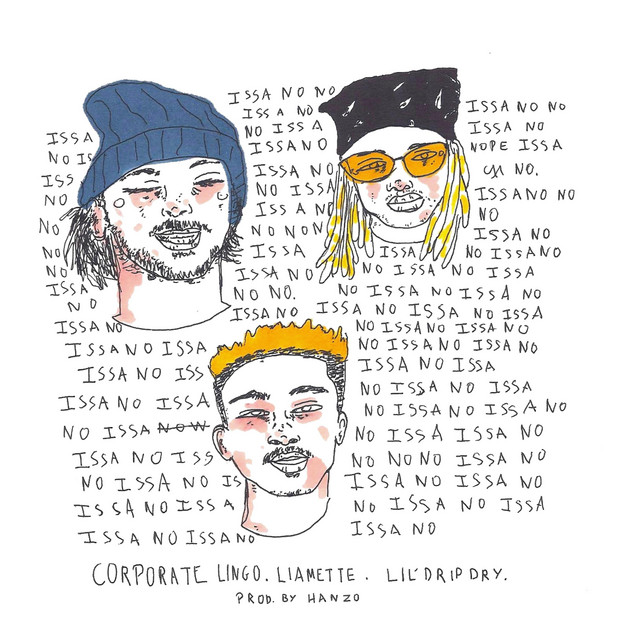 ISSA
NO IS
ISS
NO
NO
NO
NO
ISSA
NO
ISSA NO
ISSA NO ISSA
ISSA NO ISS
ISSA NO ISSA
NO ISSA NOW
ISSA NO ISS
NO ISSA NO IS
ISSA NO ISSA
ISSA NO ISSANO
ISSA NO NO
ISSA NO
NO ISSA
ISSANO
ISSA NO
NO ISSA
ISSA NO
NO NON
ISSA
ISSA NO
NO NO.
ISSANO
ISSA NO NO
ISSA NO
NOPE ISSA
NO.
ISSANO NO
NO
ISSA NO
ISSA NO ISSANO
NO ISSA NO ISSA
NO ISSA NO ISSA NO
ISSA NO ISSA NO ISSA
NO ISSANO ISSA NO
NO ISSANO ISSA NO
ISSA NO ISSA
NO ISSA NO ISSA
NO ISSANO ISSA NO
NO ISSA ISSA NO
NO NO NO ISSA NO
ISSA NO ISSA NO
NO ISSA NO ISSA
ISSA NO
CORPORATE LINGO. LIAMETTE. LIL'DRIPDRY.
PROD. BY HANZO